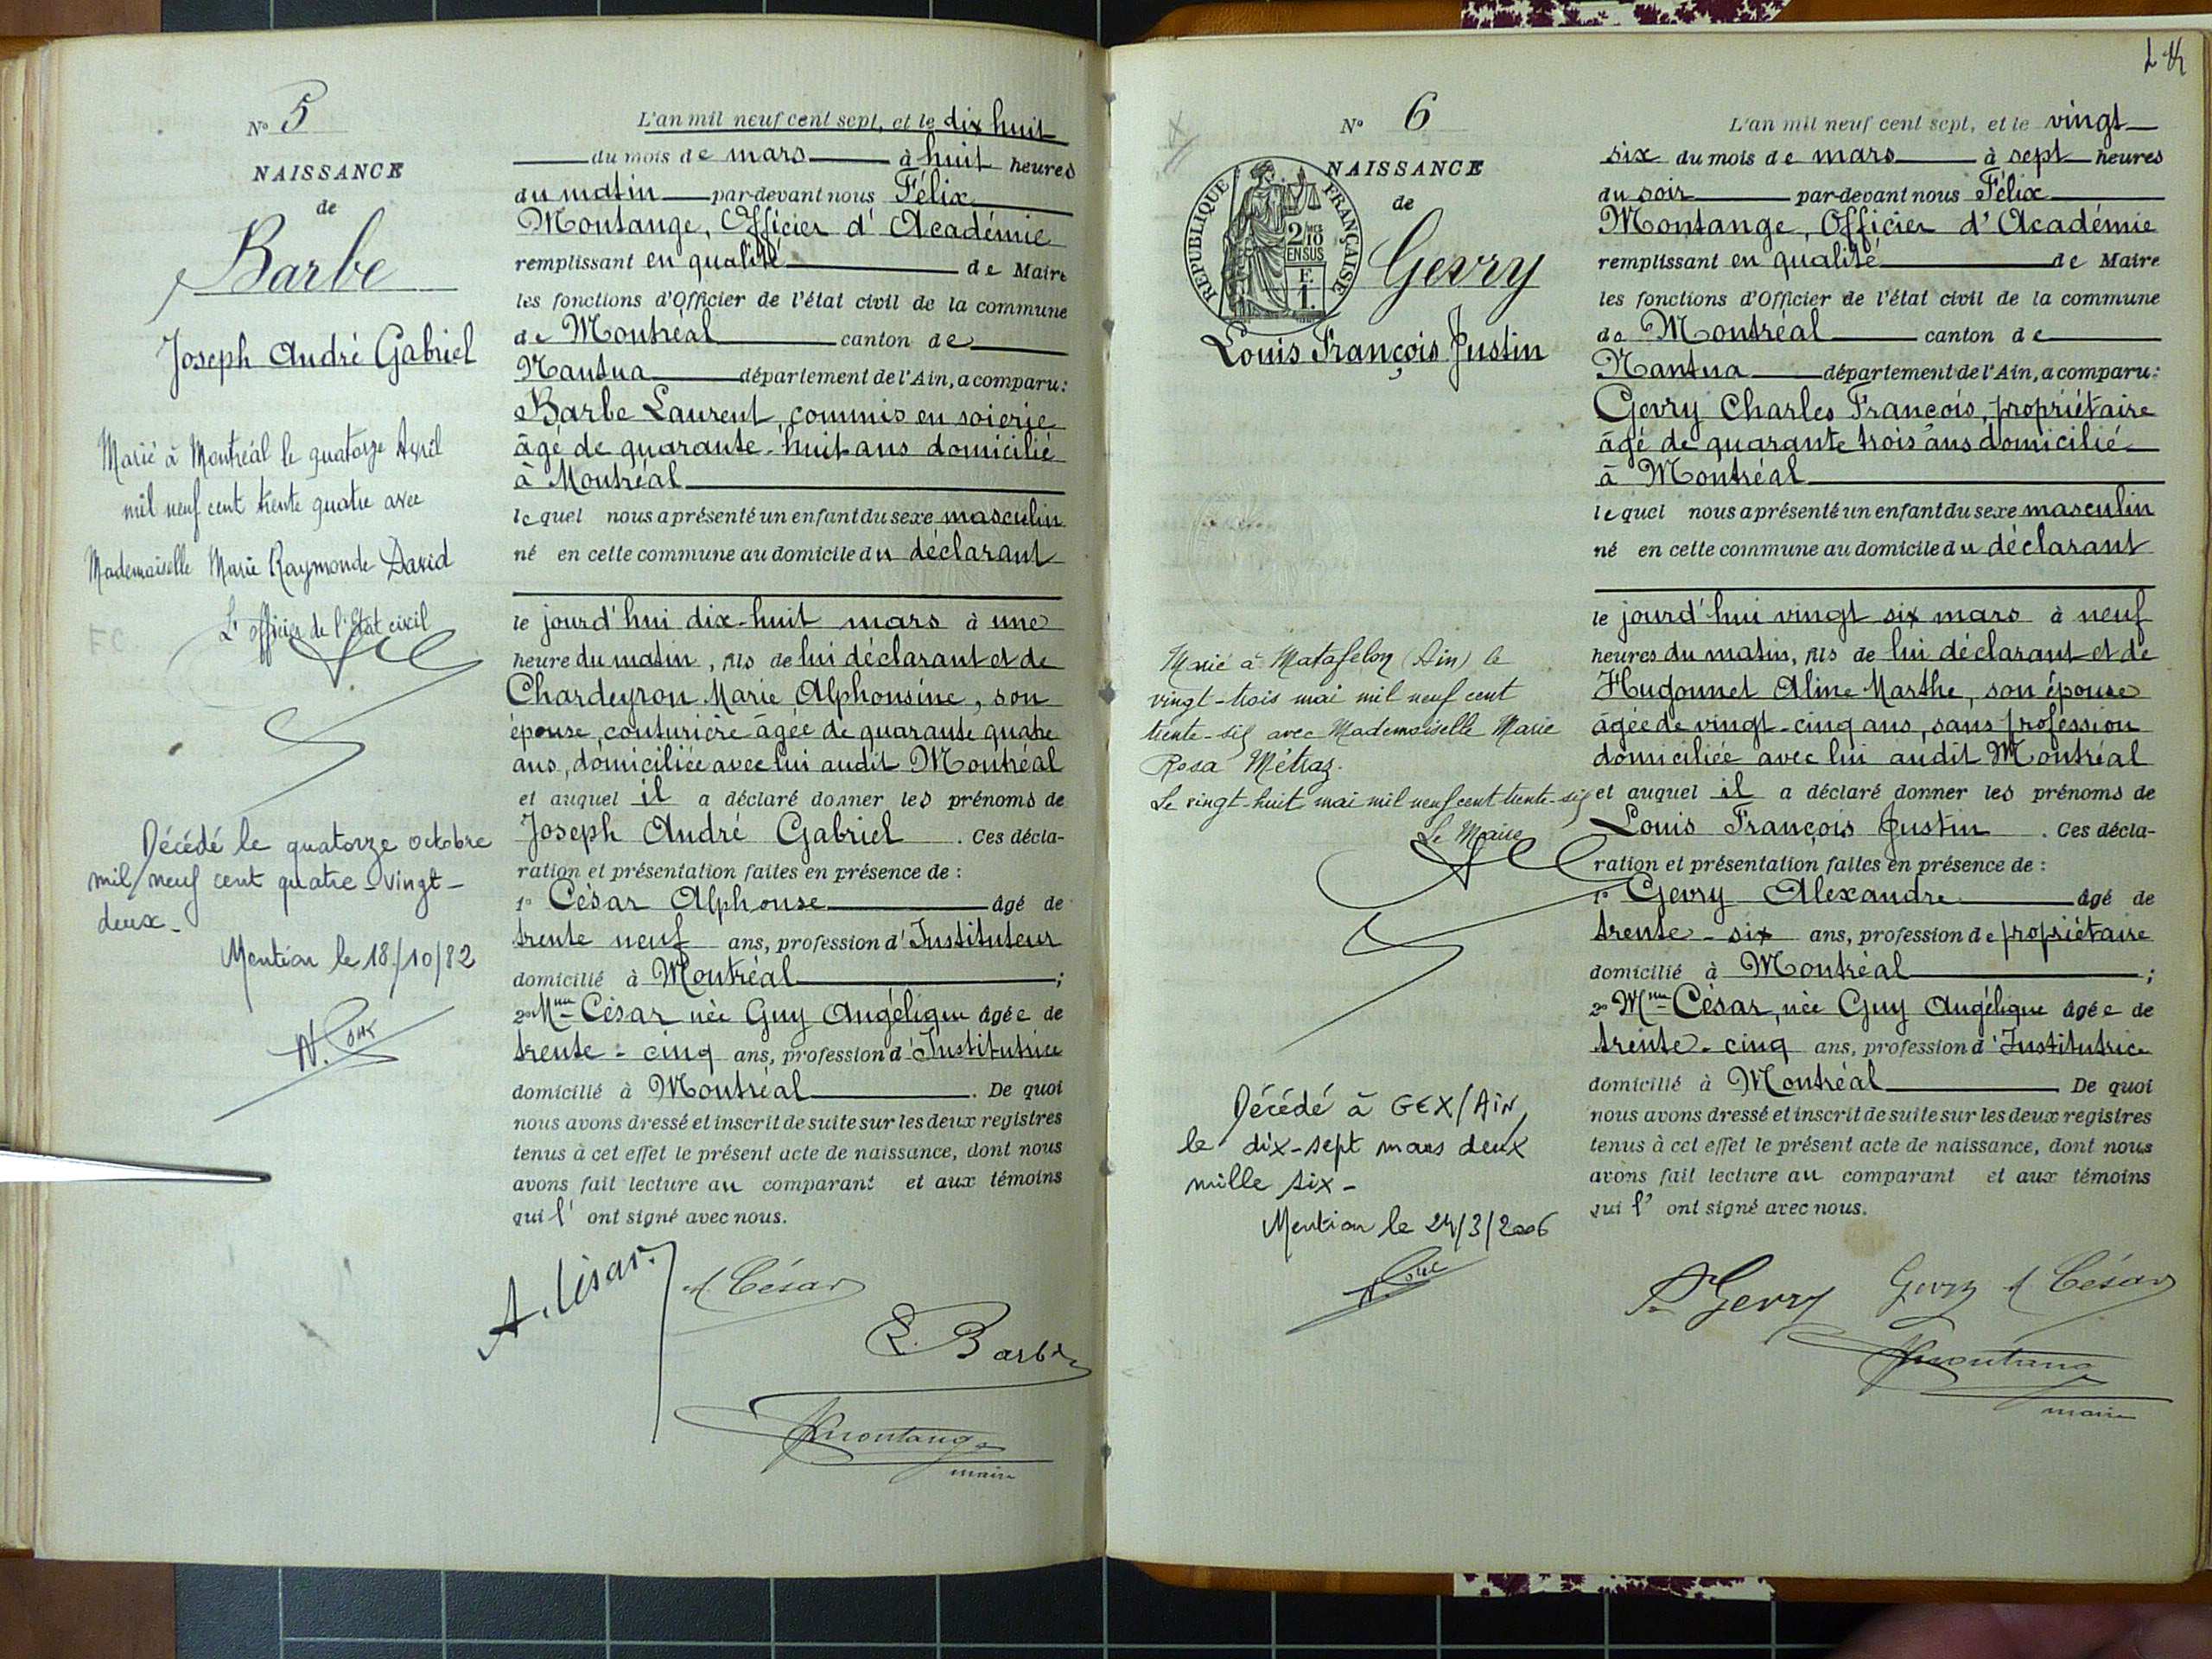 N° 5
NAISSANCE
de
Barbe
Joseph André Gabriel
Marié à Montréal le quatorze Avril
mil neuf cent trente quatre avec
Mademaiselle Marie Raymonde David
L'officier de l'Etat civil
Décédé le quatorze octobre
mil neuf cent quatre-vingt-
deux.
Mention le 18/10/82
L'an mil neuf cent sept, et le dix huit
du mois de mars à huit heures
du matin par-devant nous Félix
Montange, Officier d'Académie
remplissant en qualité de Maire
les fonctions d'Officier de l'état civil de la commune
de Montréal canton de
Nantua département de l'Ain, a comparu:
Barbe Laurent, commis en soierie
âgé de quarante-huit ans domicilié
à Montréal
lequel nous a présenté un enfant du sexe masculin
né en cette commune au domicile du déclarant
le jourd'hui dix-huit mars à une
heure du matin, fils de lui déclarant et de
Chardeyron Marie Alphonsine, son
épouse, couturière âgée de quarante quatre
ans, domiciliée avec lui audit Montréal
et auquel il a déclaré donner les prénoms de
Joseph André Gabriel. Ces décla-
ration et présentation faites en présence de :
1° César Alphonse âgé de
trente neuf ans, profession d'Instituteur
domicilié à Montréal ;
2° Mme César née Guy Angélique âgée de
trente-cinq ans, profession d'Institutrice
domicilié à Montréal. De quoi
nous avons dressé et inscrit de suite sur les deux registres
tenus à cet effet le présent acte de naissance, dont nous
avons fait lecture au comparant et aux témoins
qui l'ont signé avec nous.
A. César
A César
L. Barbe
Fmontange
maire
N° 6
NAISSANCE
de
REPUBLIQUE FRANÇAISE
2/10
EN SUS
Gevry
Louis François Justin
Marié à Matafelon (Ain) le
vingt-trois mai mil neuf cent
trente-six avec Mademoiselle Marie
Rosa Métraz.
Le vingt-huit mai mil neuf cent trente-six
Le Maire
Décédé à GEX/AIN,
le dix-sept mars deux
mille six-
Mention le 24/3/2006
L'an mil neuf cent sept, et le vingt
six du mois de mars à sept heures
du soir par-devant nous Félix
Montange, Officier d'Académie
remplissant en qualité de Maire
les fonctions d'Officier de l'état civil de la commune
de Montréal canton de
Nantua département de l'Ain, a comparu:
Gevry Charles François, propriétaire
âgé de quarante trois ans domicilié
à Montréal
lequel nous a présenté un enfant du sexe masculin
né en cette commune au domicile du déclarant
le jourd'hui vingt six mars à neuf
heures du matin, fils de lui déclarant et de
Hugonnet Aline Marthe, son épouse
âgée de vingt-cinq ans, sans profession
domiciliée avec lui audit Montréal
et auquel il a déclaré donner les prénoms de
Louis François Justin. Ces décla-
ration et présentation faites en présence de :
1° Gevry Alexandre âgé de
trente-six ans, profession de propriétaire
domicilié à Montréal ;
2° Mme César, née Guy Angélique âgée de
trente-cinq ans, profession d'Institutrice
domicilié à Montréal De quoi
nous avons dressé et inscrit de suite sur les deux registres
tenus à cet effet le présent acte de naissance, dont nous
avons fait lecture au comparant et aux témoins
qui l'ont signé avec nous.
Gevry Gevry A César
Fmontange
maire